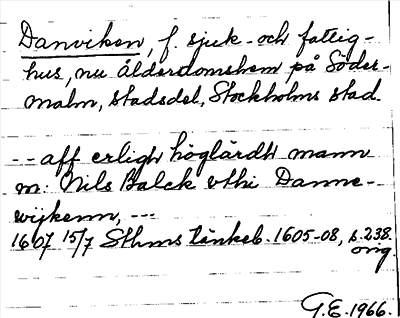 Danviken, f. sjuk- och fattig-
hus, nu ålderdomshem på Söder-
malm, stadsdel, Stockholms stad.
-- aff erligh höglärdh mann
m: Nils Balck vthi Danne-
wijkenn, ---
1607 15/7 Sthms tänkeb. 1605-08, s. 238.
orig.
G.E. 1966.